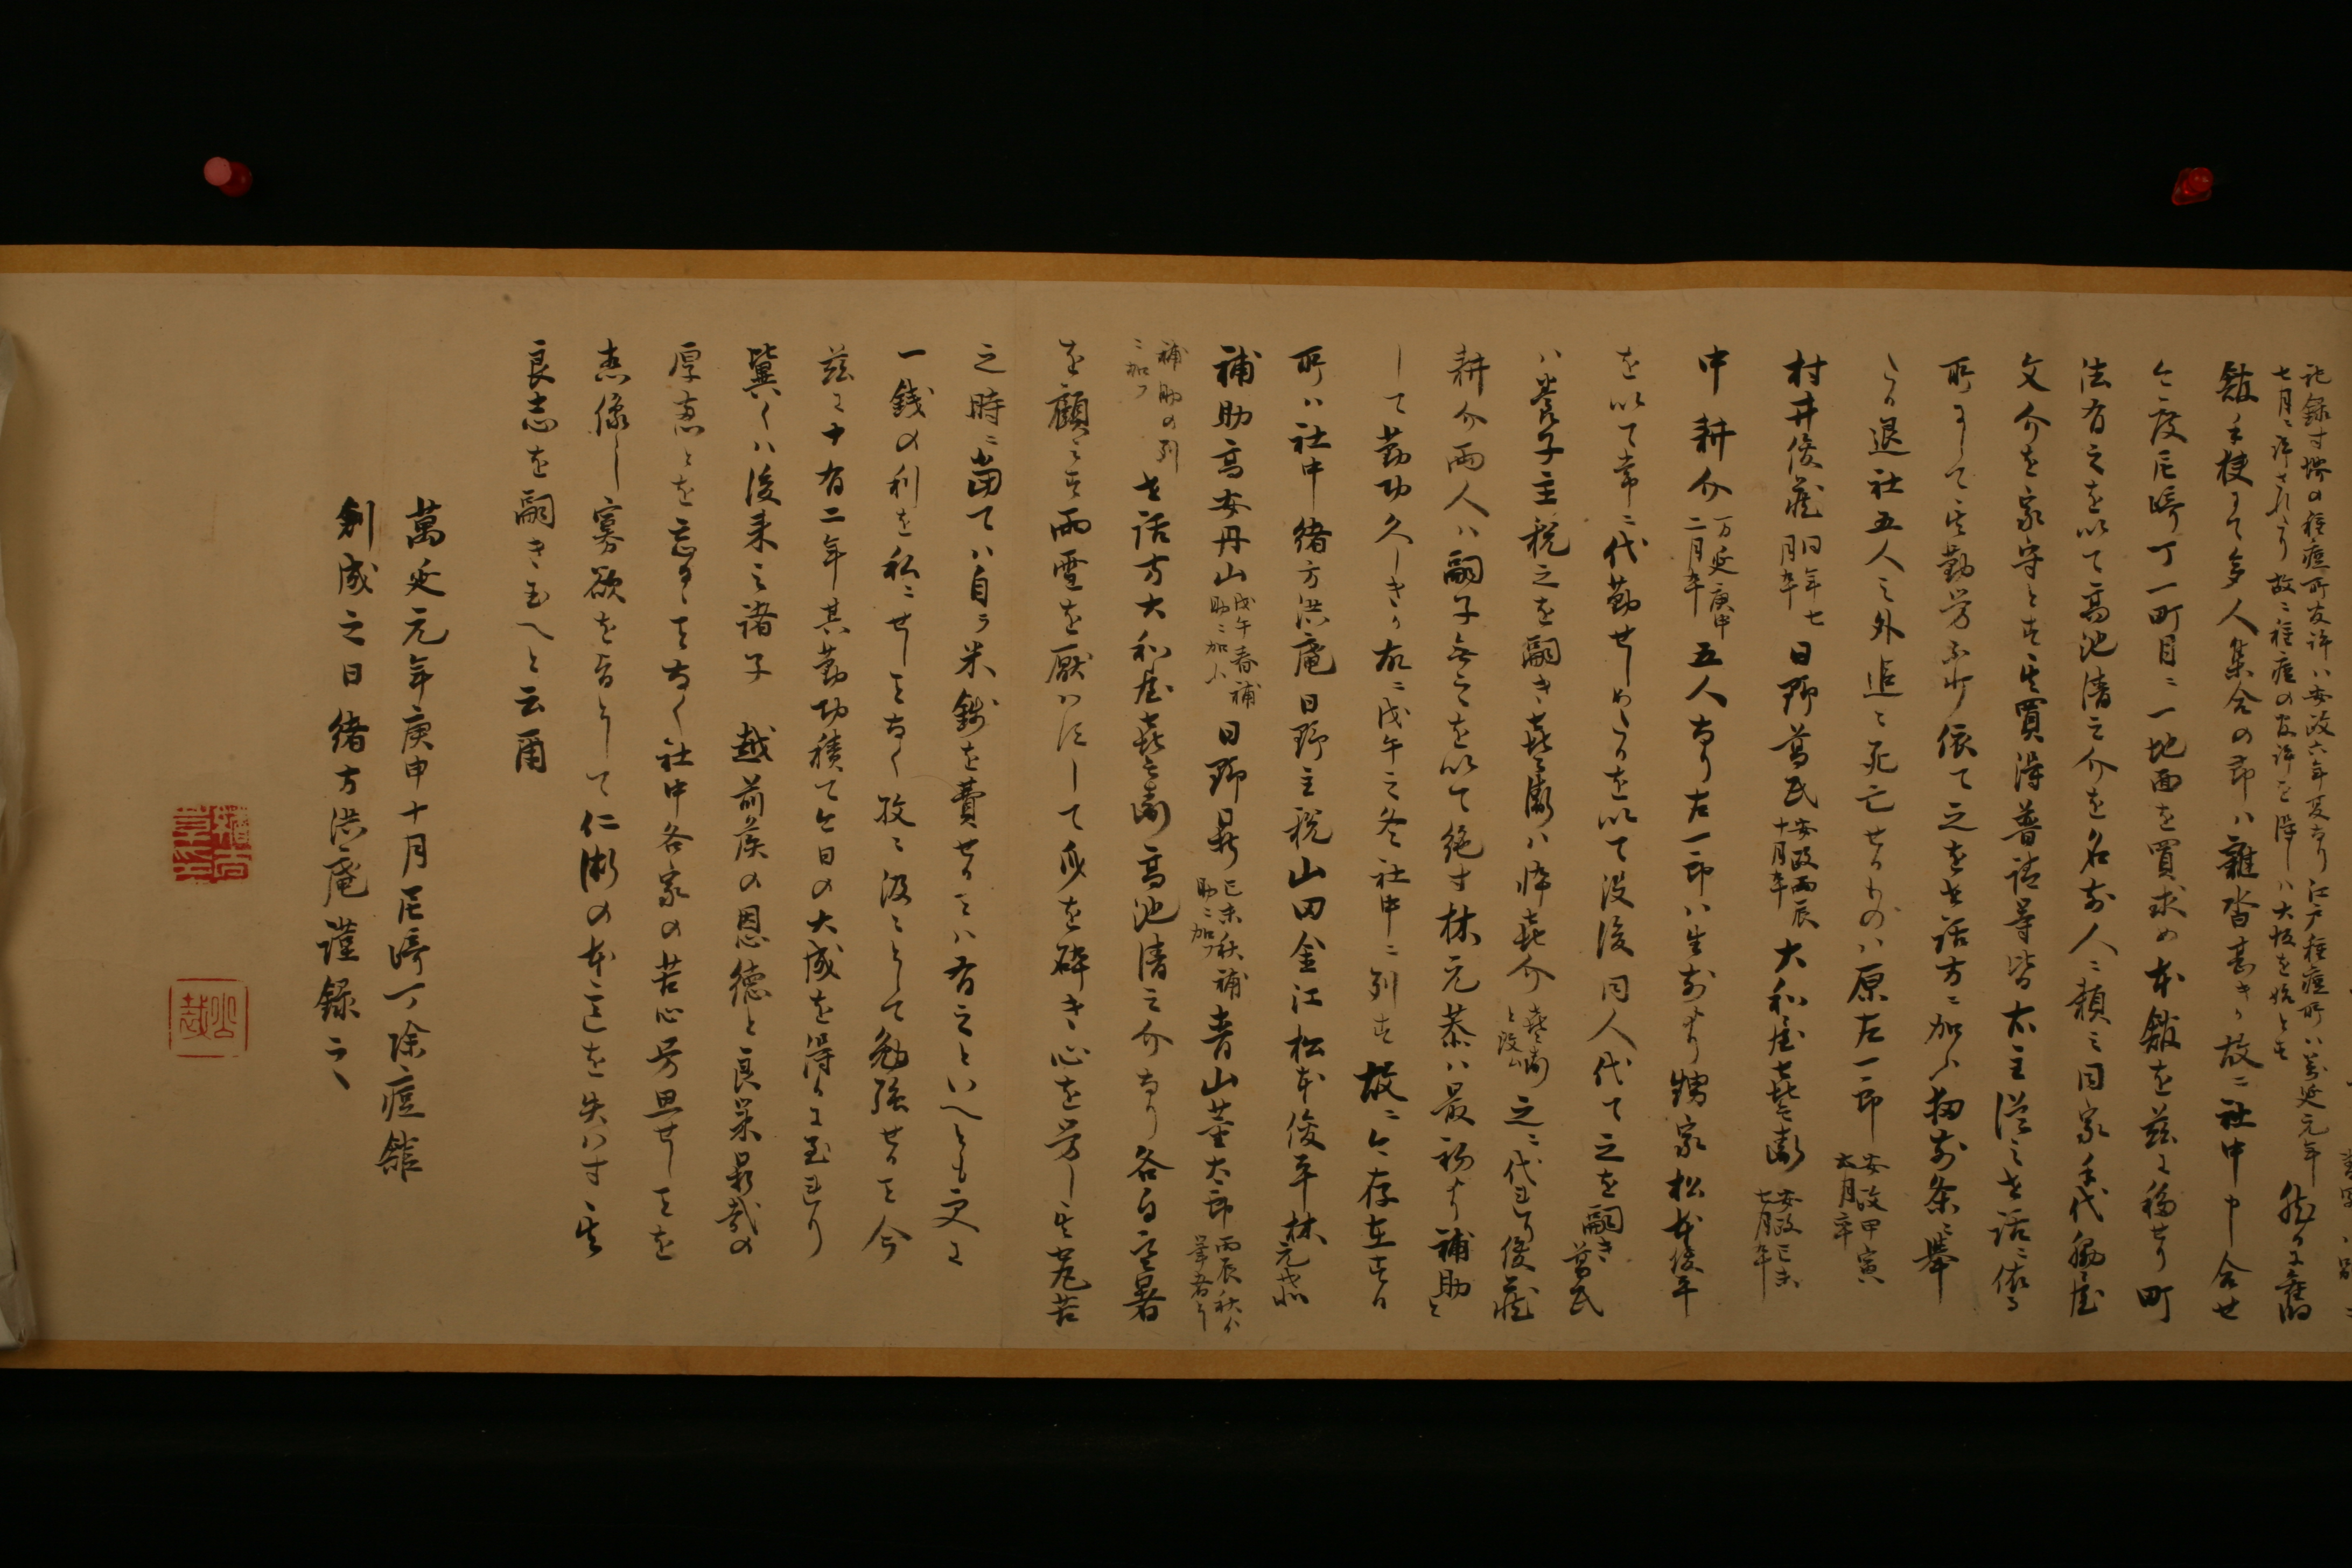 記録す堺の種痘所官許ハ安政六年夏なり江戸種痘所ハ万延元年
七月ニ許されたり故ニ種痘の官許を得しハ大坂を始とす
然るに舊
館手狭にて多人集会の節ハ雑沓甚きか故ニ社中申合せ
今度尼崎丁一町目ニ一地面を買求め本館を茲に移せり町
法有之を以て高池清之介を名前人ニ頼ミ同家手代鍋屋
文介を家守とす其買得普請等皆大主深之世話ニ依る
所にして其勤労不少依て之を世話方ニ加ふ扨前条ニ挙
たる退社五人之外追々死亡せるものハ原左一郎
安政甲寅
六月卒
村井俊蔵
同年七
月卒
日野葛民
安政丙辰
十月卒
大和屋喜兵衛
安政己未
七月卒
中耕介
万延庚申
二月卒
五人なり左一郎ハ生前より甥家松本俊平
を以て常ニ代勤せしめたるを以て没後同人代て之を嗣き葛民
ハ養子主税之を嗣き喜兵衛ハ忰喜介
喜兵衛
と改
之ニ代れり俊蔵
耕介両人ハ嗣子無之を以て絶す林元恭ハ最初より補助と
して勤功久しきか故ニ戊午之冬社中ニ列す故ニ今存在する
所ハ社中緒方洪庵日野主税山田金江松本俊平林元恭
補助高安丹山
戊午春補
助ニ加ハる
日野鼎
己未秋補
助ニ加フ
青山董太郎
丙辰秋
補助の列
ニ加フ
世話方大和屋喜兵衛高池清之介なり各自寒暑
を顧ミす雨雪を厭ハすして身を砕き心を労し其荒苦
之時ニ当てハ自ラ米銭を費せる事ハ有之といへとも更に
一銭の利を私ニせし事なく孜々汲々として勉強せる事今
茲に十有二年其勤功積て今日の大成を得るに至れり
冀くハ後来之諸子 越前侯の恩徳と良策鼎哉の
厚志とを忘るゝ事なく社中各家の苦心労思せし事を
想像し寡欲を旨として仁術の本意を失ハす其
良志を嗣き玉へと云爾
萬延元年庚申十月尼崎丁除痘館
創成之日緒方洪庵謹録之